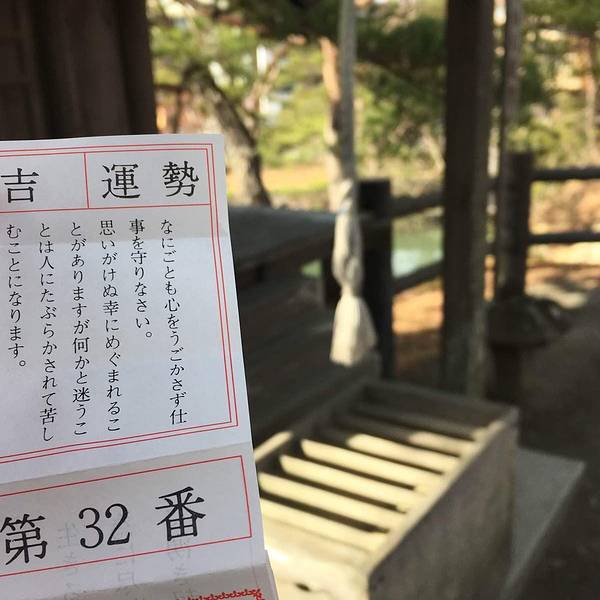 運勢
吉
なにごとも心をうごかさず仕
事を守りなさい。
思いがけぬ幸にめぐまれるこ
とがありますが何かと迷うこ
とは人にたぶらかされて苦し
むことになります。
第32番